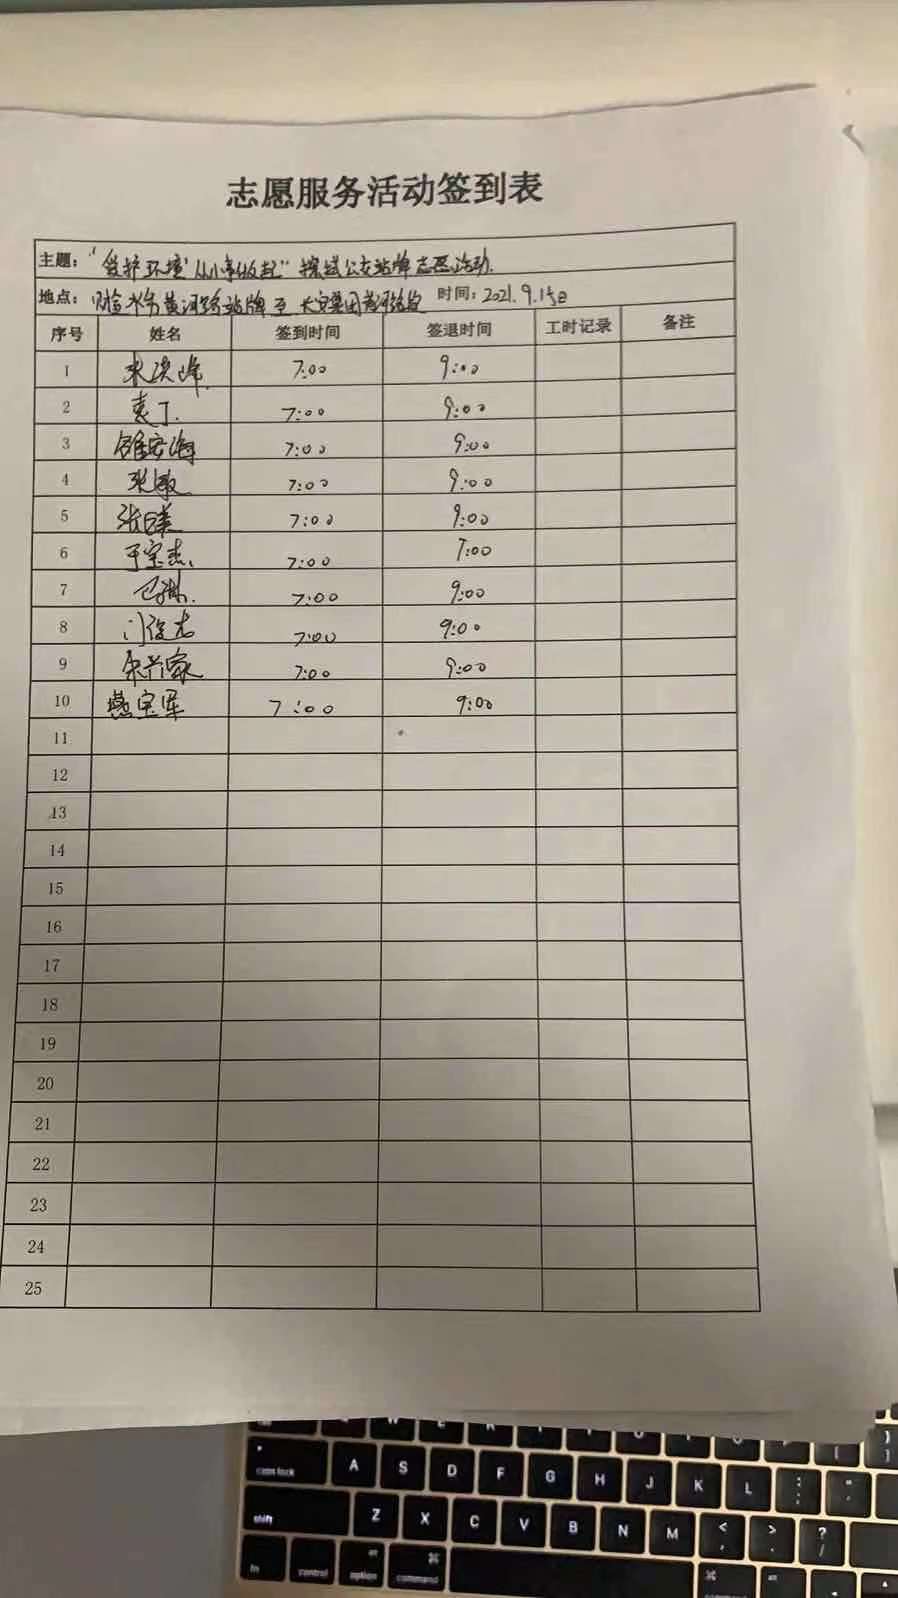 志愿服务活动签到表
主题："爱护环境 从小事做起"擦拭公交站牌志愿活动.
地点： 黄河路站牌至 时间：2021.9.15日
序号 姓名 签到时间 签退时间 工时记录 备注
1 7:00 9:00
2 袁丁. 7:00 9:00
3 7:00 9:00
4 张敏 7:00 9:00
5 7:00 9:00
6 于宝杰. 7:00 7:00
7 7:00 9:00
8 门俊杰 7:00 9:00
9 7:00 9:00
10 燕宝军 7:00 9:00
11
12
13
14
15
16
17
18
19
20
21
22
23
24
25
W E R
caps lock A S D F G H J K L : ; " '
shift Z X C V B N M < , > . ? /
fn control alt option ⌘ command ⌘ command alt